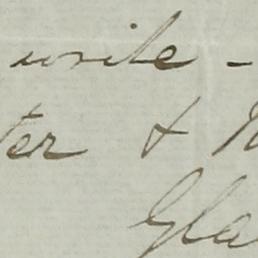 write -
ter & N
Gla